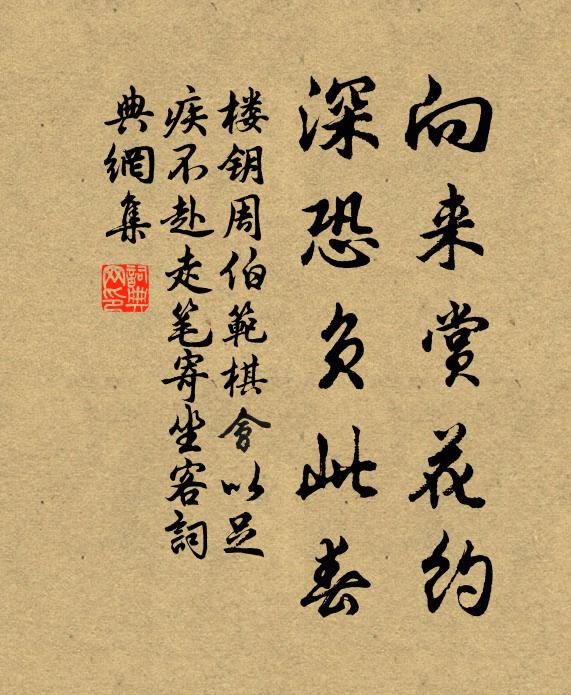 向来赏花约
深恐负此春
楼钥周伯範棋會以足
疾不赴走笔寄坐客詞
典網集
詞典
网印